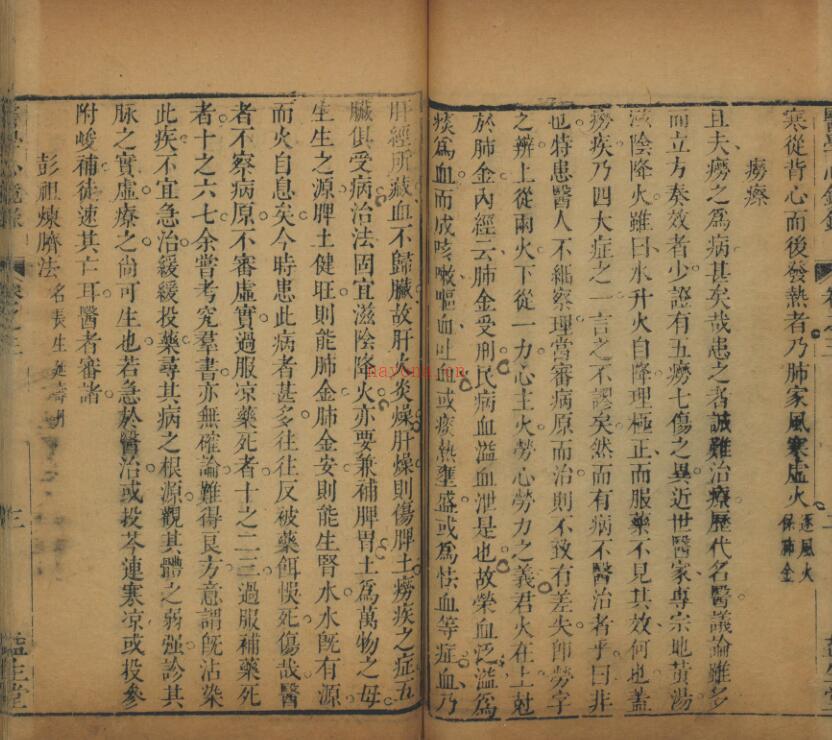 寒從背心而後發熱者乃肺家風寒虛火逐風火保肺金
癆瘵
且夫癆之爲病甚矣哉患之者誠難治療歷代名醫議論雖多
而立方奏效者少證有五癆七傷之異近世醫家專宗地黃湯
滋陰降火雖曰水升火自降理極正而服藥不見其效何也蓋
癆疾乃四大症之一言之不謬矣然而有病不醫治者乎曰非
也特患醫人不細察理當審病原而治則不致有差失卽勞字
之辨上從兩火下從一力心主火勞心勞力之義君火在上尅
於肺金內經云肺金受刑民病血溢血泄是也故榮血泛溢爲
痰爲血而成咳嗽嘔血吐血或痰熱壅盛或爲怯血等症血乃
肝經所藏血不歸臟故肝火炎燥肝燥則傷脾土癆疾之症五
臟俱受病治法固宜滋陰降火亦要兼補脾胃土爲萬物之母
生生之源脾土健旺則能肺金肺金安則能生腎水水旣有源
而火自息矣今時患此病者甚多往往反被藥餌悞死傷哉醫
者不察病原不審虛實過服凉藥死者十之二三過服補藥死
者十之六七余嘗考究羣書亦無確論難得良方意謂旣沾染
此疾不宜急治緩緩投藥尋其病之根源觀其體之弱强診其
脉之實虛療之尙可生也若急於醫治或投芩連寒凉或投參
附峻補徒速其亡耳醫者審諸
彭祖煉臍法名長生延壽丹
卷之三
三
nayona.cn